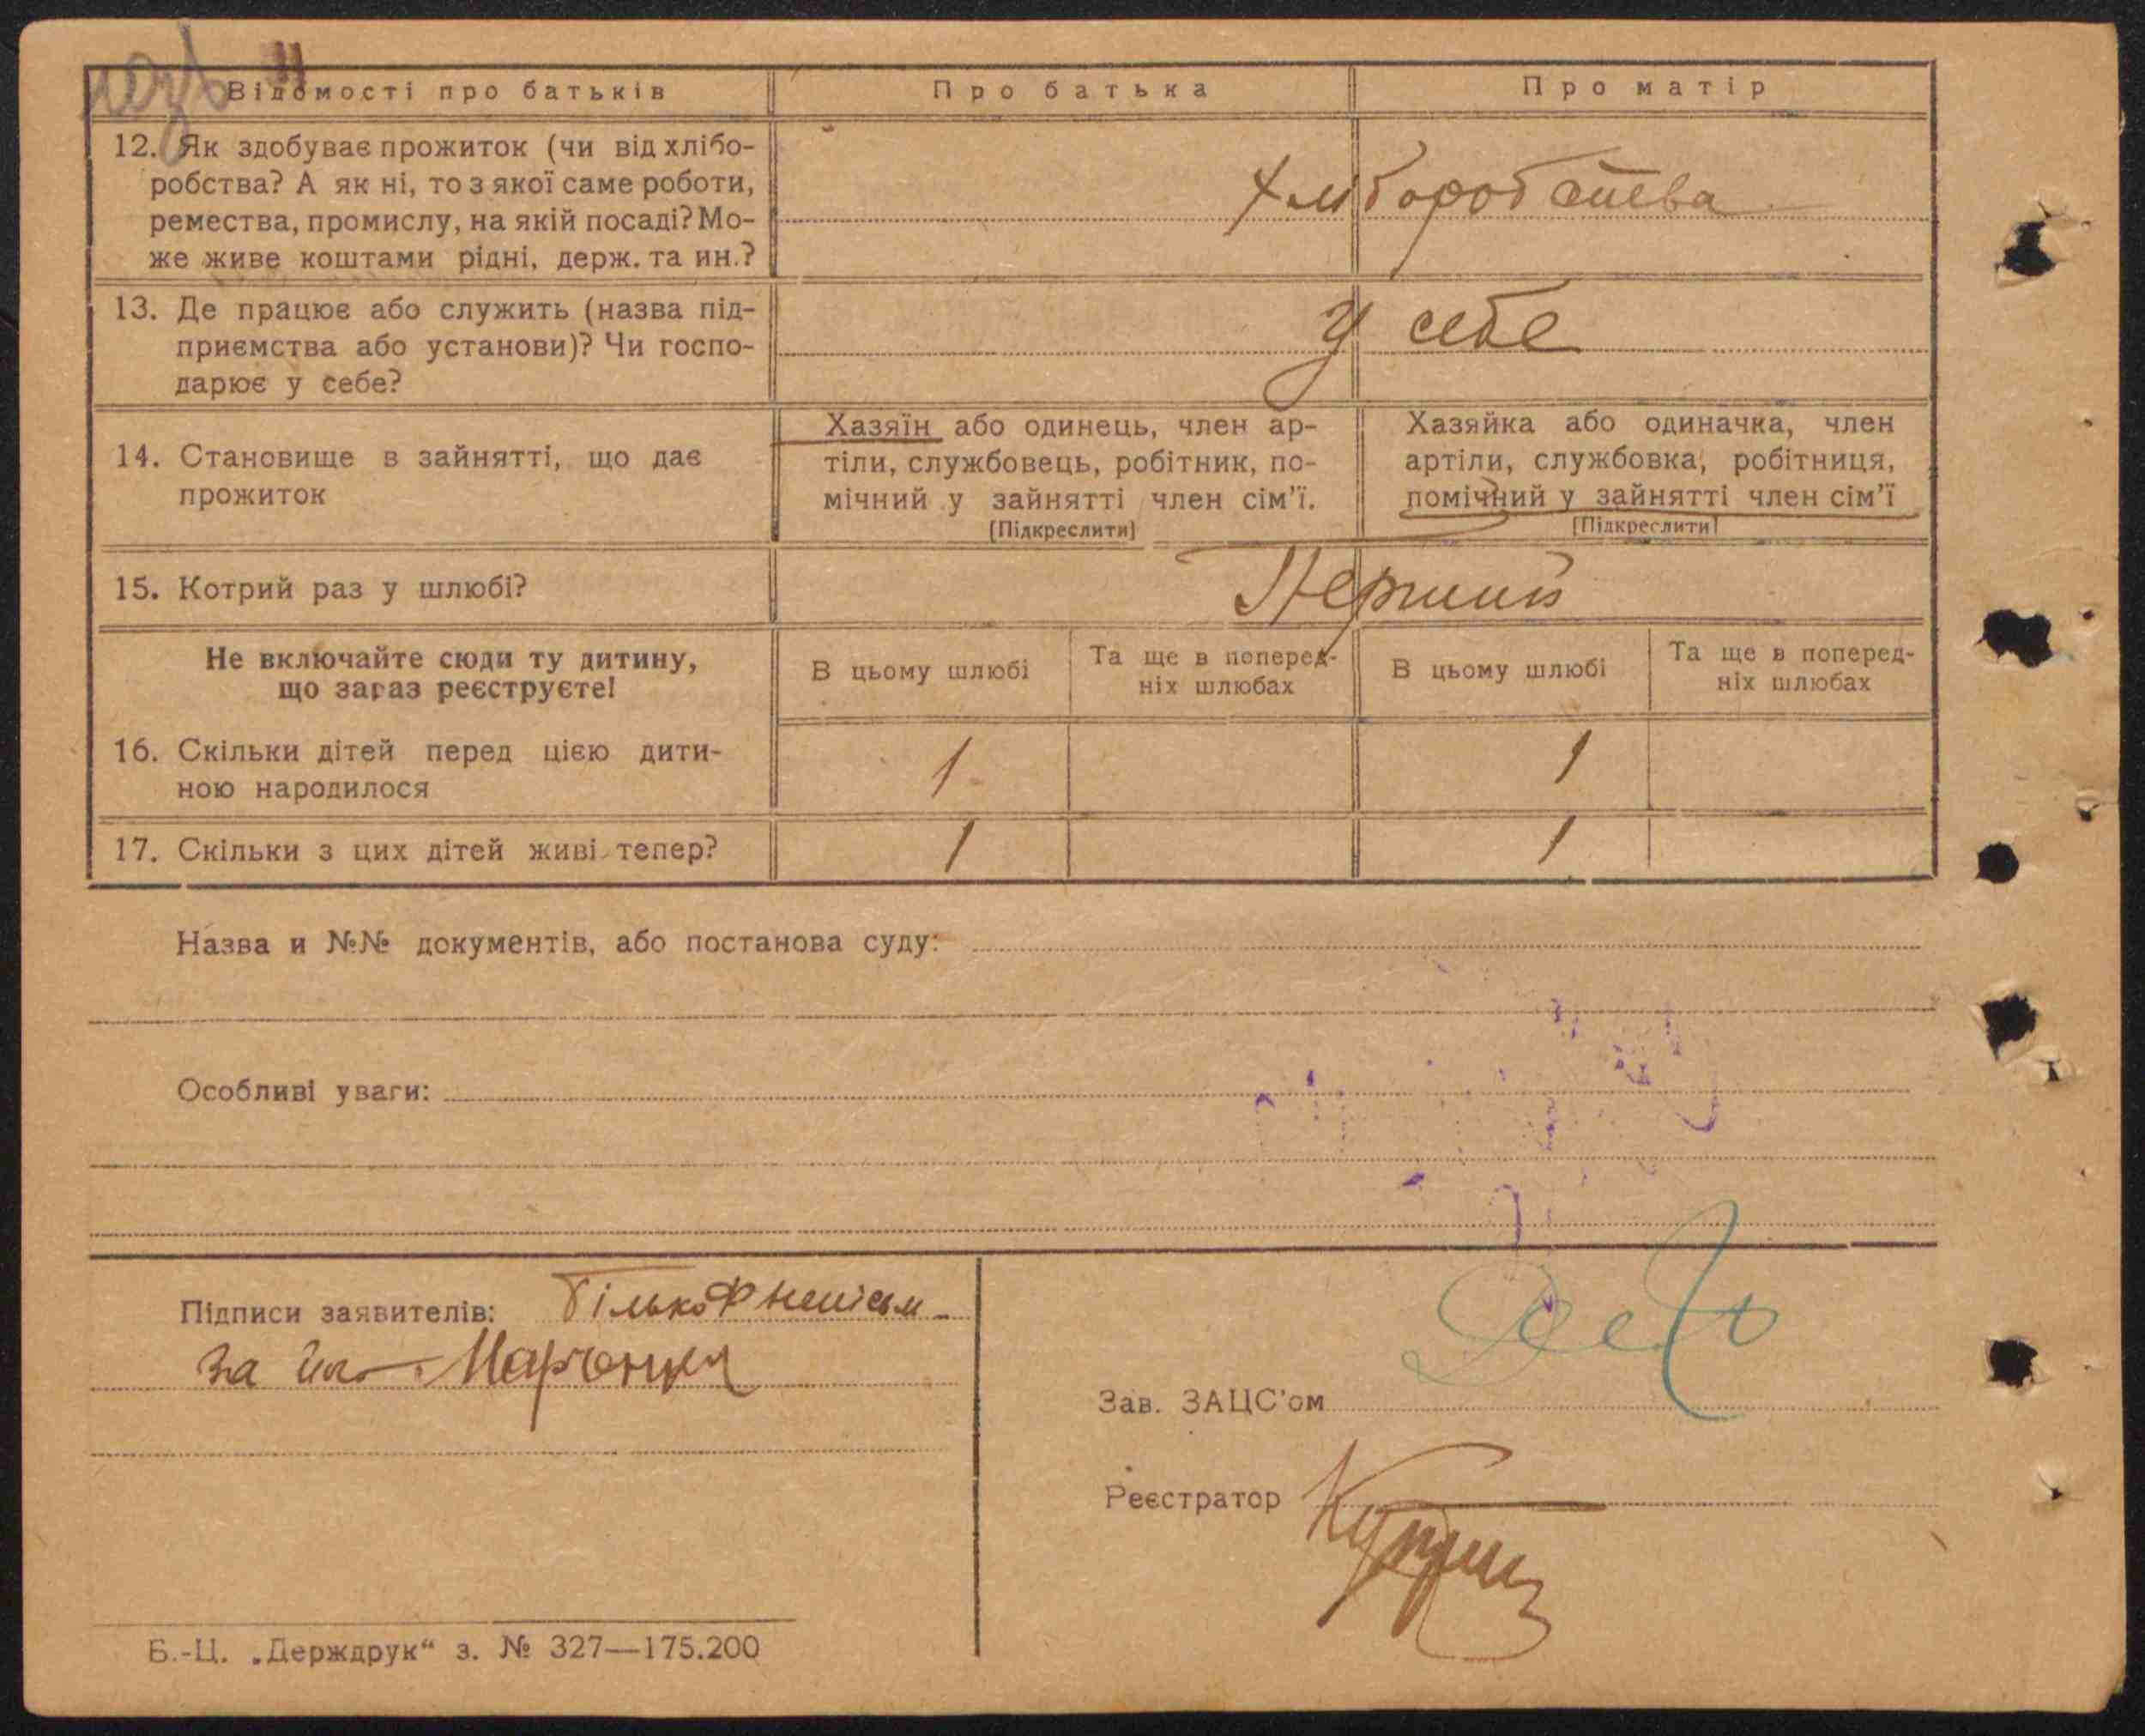 Відомості про батьків
Про батька
Про матір
12. Як здобуває прожиток (чи від хлібо-
робства? А як ні, то з якої саме роботи,
ремества, промислу, на якій посаді? Мо-
же живе коштами рідні, держ. та ин.?
Хліборобства
13. Де працює або служить (назва під-
приємства або установи)? Чи госпо-
дарює у себе?
У себе
14. Становище в зайнятті, що дає
прожиток
Хазяїн або одинець, член ар-
тіли, службовець, робітник, по-
мічний у зайнятті член сім'ї.
[Підкреслити]
Хазяйка або одиначка, член
артіли, службовка, робітниця,
помічний у зайнятті член сім'ї
[Підкреслити]
15. Котрий раз у шлюбі?
Перший
Не включайте сюди ту дитину,
що зараз реєструєте!
В цьому шлюбі
Та ще в поперед-
ніх шлюбах
В цьому шлюбі
Та ще в поперед-
ніх шлюбах
16. Скільки дітей перед цією дити-
ною народилося
1
1
17. Скільки з цих дітей живі тепер?
1
1
Назва и №№ документів, або постанова суду:
Особливі уваги:
Підписи заявителів: Білько
за
Зав. ЗАЦС'ом
Реєстратор
Б.-Ц. „Держдрук“ з. № 327—175.200